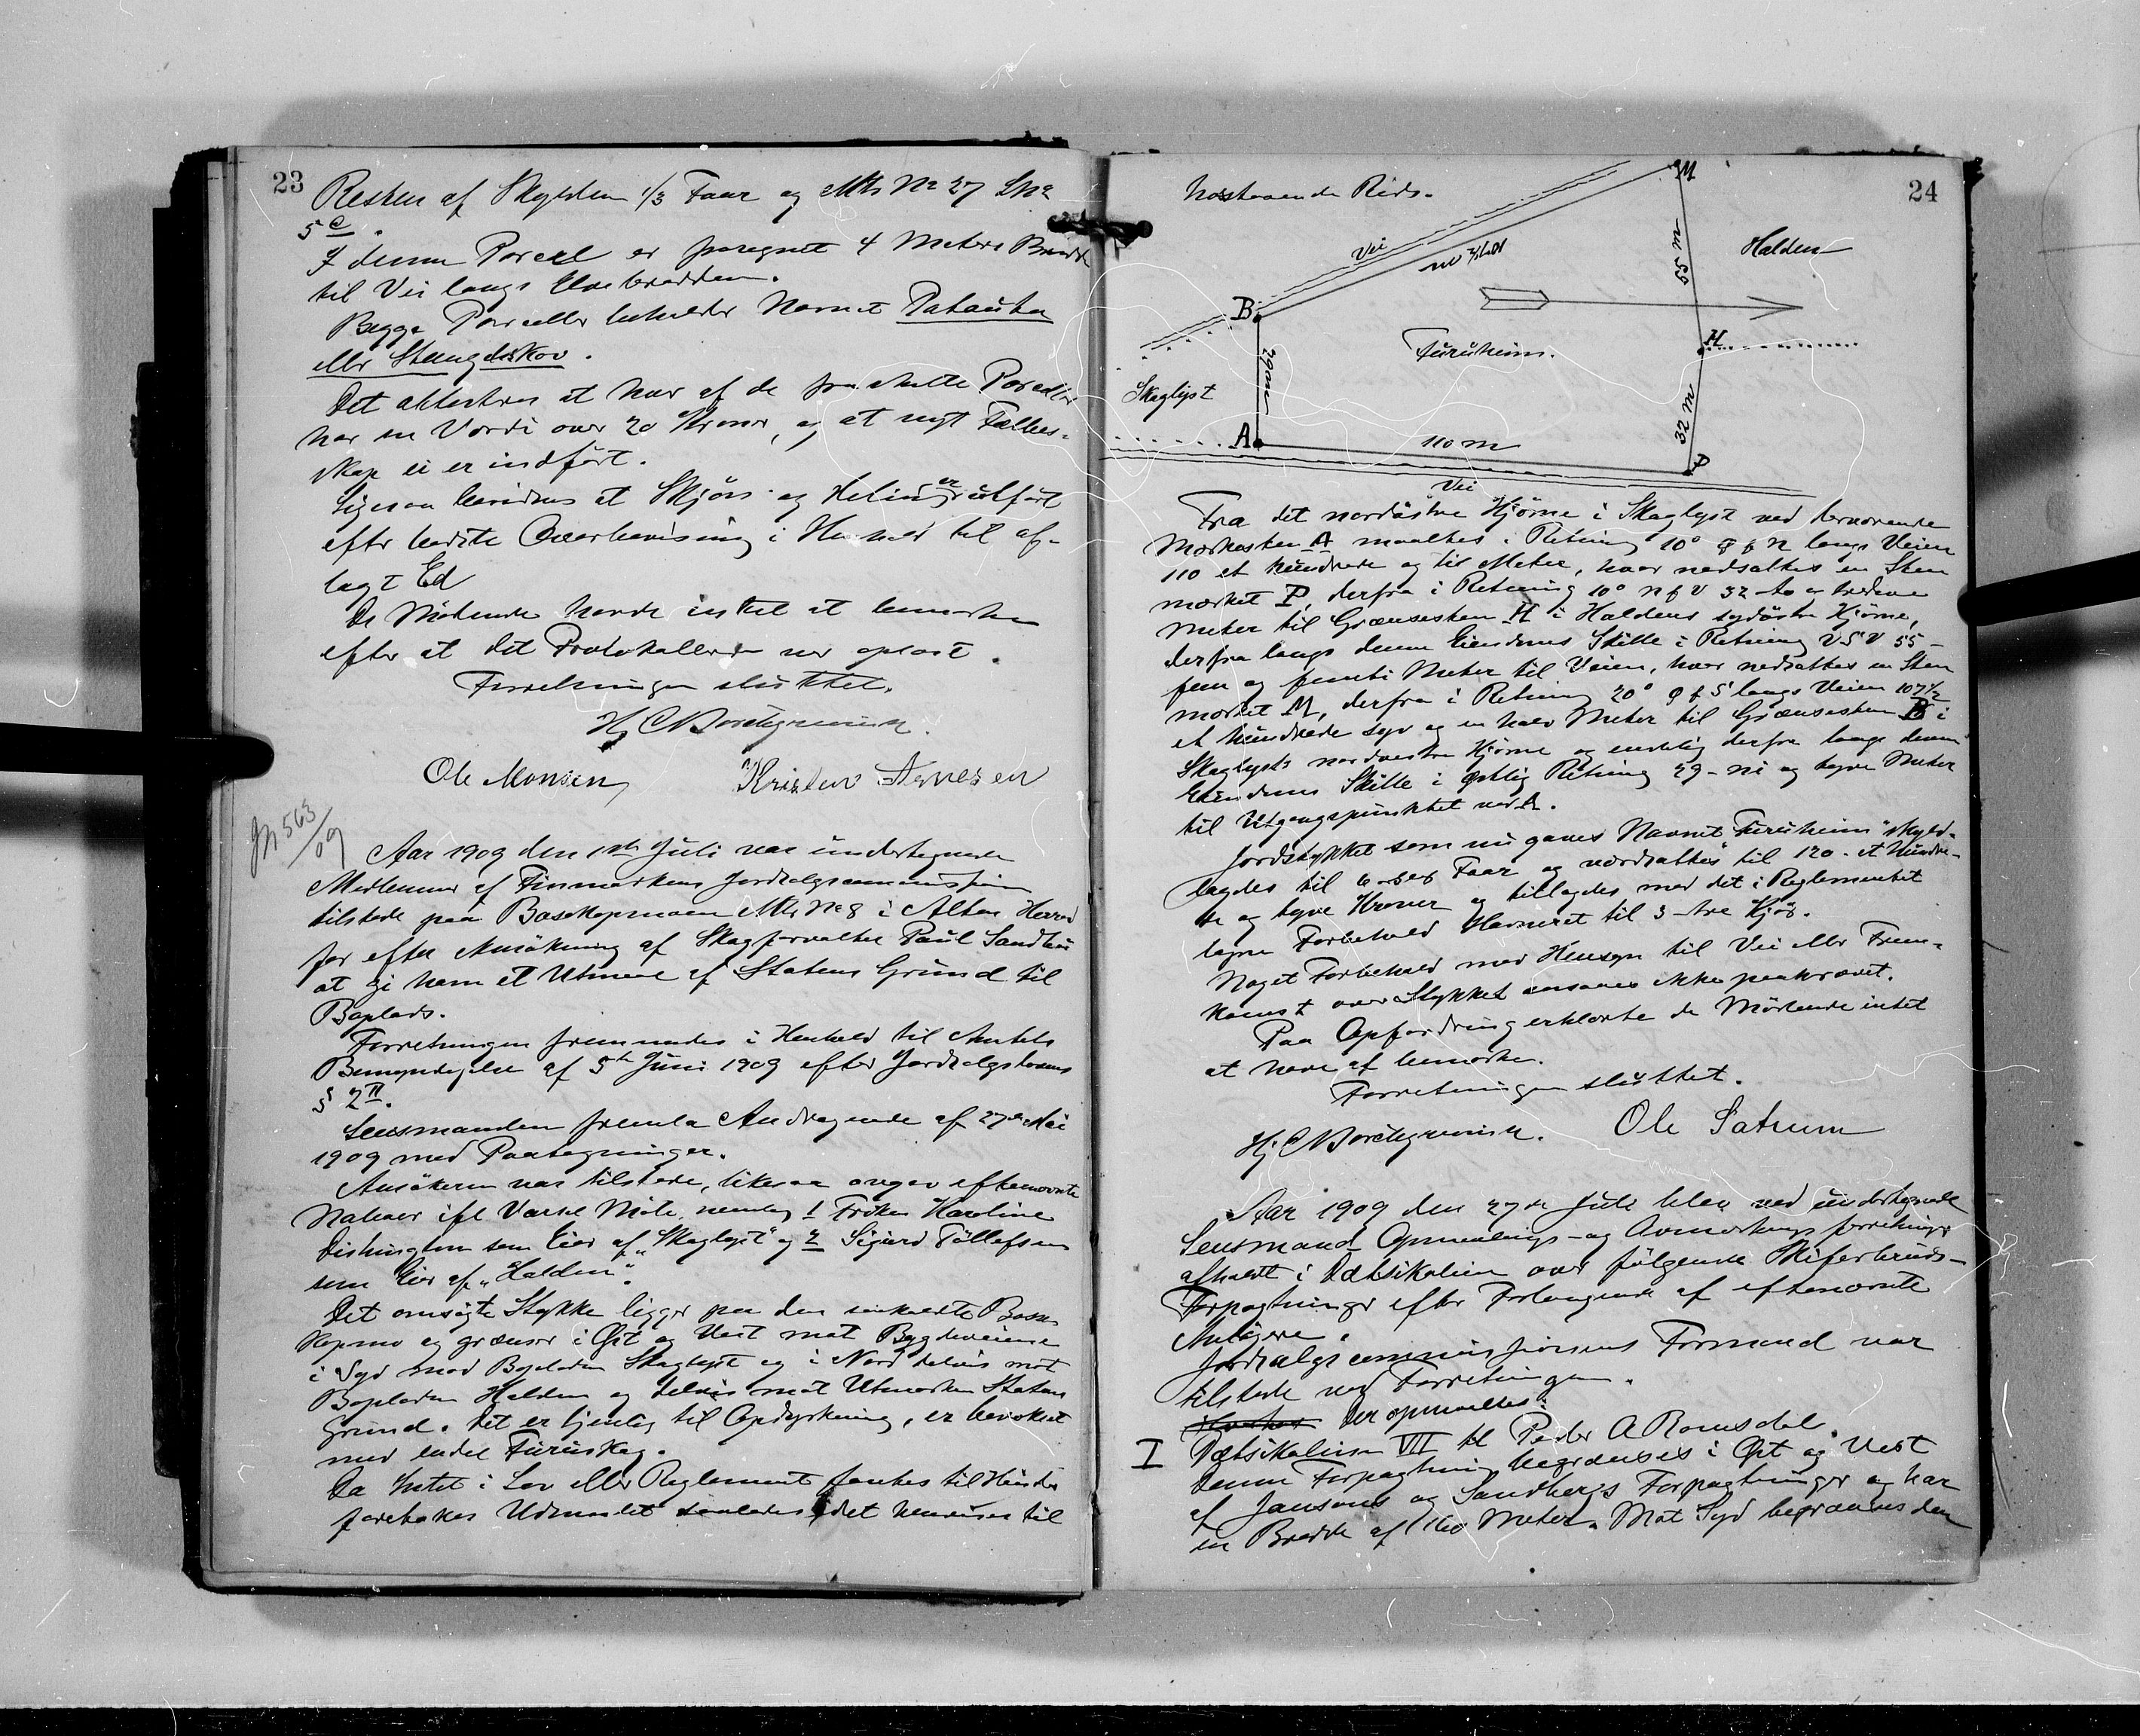 23
Resten af Skylden 1/3 Faar og Mtr No 27 LNo
5 c.
I denne Parcel er paregnet 4 Meters Bredde
til Vei langs Elvebredden.
Begge Parceller beholder Navnet Patauka
eller Stengelskov.
Det attesteres at hver af de fraskilte Parceller
har en Værdi over 20 Kroner, og at nyt Fælles-
skap ei er indført.
Ligesaa bevidnes at Skjøn og Deling er utført
efter bedste Overbevisning i Henhold til af-
lagt Ed
De Mötende havde intet at bemærke
efter at det Protokollerede var oplæst.
Forretningen sluttet.
Hj C Borchgrevink.
Ole Monsen Kristen Agnesen
Jn 563/09
Aar 1909 den 1ste Juli var undertegnede
Medlemmer af Finmarkens Jordsalgscommission
tilstede paa Bosekopmoen Mtr No 8 i Alten Herred
for efter Ansökning af Skogforvalter Paul Sandhei
at gi ham et Utmaal af Statens Grund til
Boplads.
Forretningen fremmedes i Henhold til Amtets
Bemyndigelse af 5te Juni 1909 efter Jordsalgslovens
§ 2 II.
Lensmanden fremla Andragende af 27de Mai
1909 med Paategninger.
Ansökeren var tilstede, likesaa angav eftenævnte
Naboer ifl Varsel Möte nemlig 1 Frøken Karoline
Dishington som Eier af „Skoglyst" og 2 Sigurd Tollefsen
som Eier af „Halden".
Det omsögte Stykke ligger paa den saakaldte Bosse
kopmo og grænser i Øst og Vest mot Bygdeveiene
i Syd mod Bopladsen Skoglyst og i Nord delvis mot
Bopladsen Halden og delvis mot Utmarken Statens
Grund. Det er tjenlig til Opdyrkning, er bevokset
med endel Furuskog.
Da Intet i Lov eller Reglement fantes til Hinder
foretokes Udmaalet saaledes idet henvises til
24
Næstaaende Rids.
M
Vei
107½ m
55 m
Halden
B
H
Furuheim.
29 m
Skoglyst
32 m
A
110 m
P
Vei
Fra det nordöstre Hjörne i Skoglyst ved derværende
Mærkesten A maaltes i Retning 10° Ø f N langs Veien
110 et hundrede og til Meter, hvor nedsattes en Sten
mærket P, derfra i Retning 10° N f V 32 - to og tredeve
Meter til Grænsesten H i Haldens sydöstre Hjörne,
derfra langs denne Eiendoms Skille i Retning VSV 55 -
fem og femti Meter til Veien, hvor nedsattes en Sten
mærket M, derfra i Retning 20° Ø f S langs Veien 107½
et hundrede syv og en halv Meter til Grænsesten B i
Skoglysts nordvestre Hjörne og endelig derfra langs denne
Eiendoms Skille i østlig Retning 29 - ni og tyve Meter
til Utgangspunktet ved A.
Jordstykket som nu gaves Navnet „Furuheim" skyld-
lagdes til Faar og værdsattes til 120 - et hundre-
de og tyve Kroner og tillagdes med det i Reglementet
tagne Forbehold Havneret til 3 - tre Kjör.
Noget Forbehold med Hensyn til Vei eller Frem-
komst over Stykket ansaaes ikke paakrævet.
Paa Opfordring erklærte de Mödende intet
at have af bemærke.
Forretningen sluttet.
Hj C Borchgrevink. Ole Satrum
Aar 1909 den 27de Juli blev ved undertegnede
Lensmand Opmaalings- og Avmerkningsforretninger
afholdt i Dætsikalien over følgende Skiferbruds-
Forpagtninger efter Forlangende af eftenævnte
Ansögere.
Jordsalgscommissionens Formand var
tilstede ved Forretningen.
Der opmaaltes:
I Dætsikalien VII til Peder A Romsdal.
Denne Forpagtning begrænses i Øst og Vest
af Jansens og Sandbergs Forpagtninger og har
en Bredde af 160 Meter. Mot Syd begrænses den